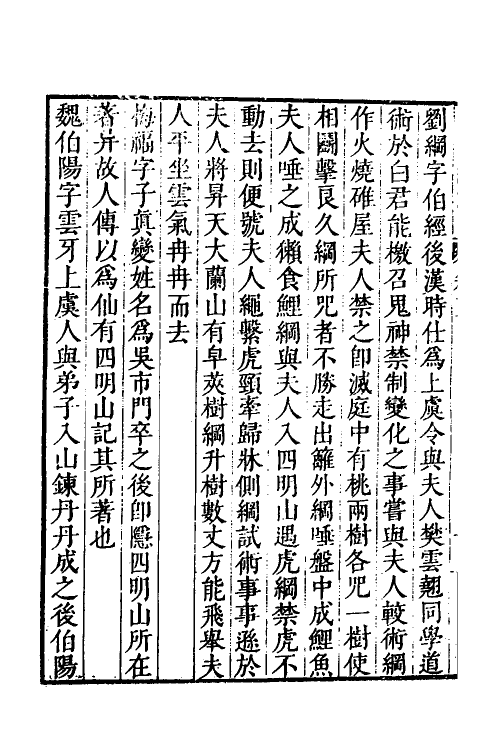 劉綱字伯經後漢時仕爲上虞令與夫人樊雲翹同學道
術於白君能檄召鬼神禁制變化之事嘗與夫人較術綱
作火燒碓屋夫人禁之卽滅庭中有桃兩樹各咒一樹使
相鬭擊良久綱所咒者不勝走出籬外綱唾盤中成鯉魚
夫人唾之成獺食鯉綱與夫人入四明山遇虎綱禁虎不
動去則便號夫人繩繫虎頸牽歸牀側綱試術事事遜於
夫人將昇天大蘭山有皁莢樹綱升樹數丈方能飛舉夫
人平坐雲氣冉冉而去
梅福字子眞變姓名爲吳市門卒之後卽隱四明山所在
著异故人傳以爲仙有四明山記其所著也
魏伯陽字雲牙上虞人與弟子入山鍊丹丹成之後伯陽